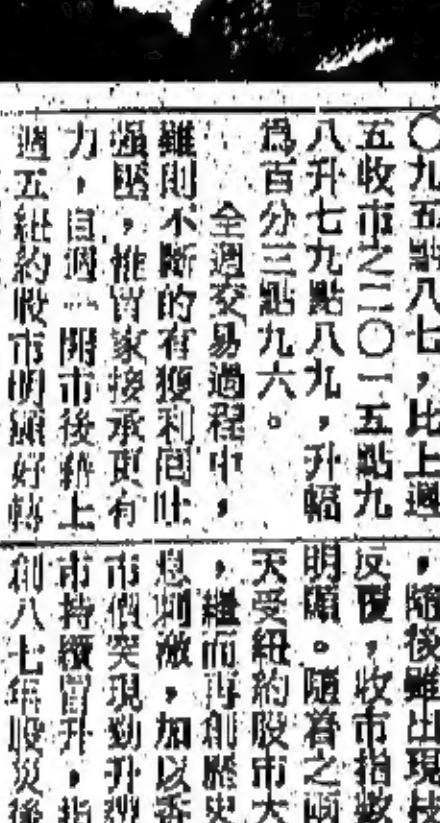 〇九五點八七，比上週
五收市之二〇一五點九
八升七九點八九，升幅
為百分三點九六。
全週交易過程中，
雖則不斷的有獲利回吐
強壓，惟買家接承更有
力，自週一開市後藉上
週五紐約股市明顯好轉
，隨後雖出現
反覆，收市指數
明顯。隨着之
天受紐約股市大
，繼而再創歷史
息刺激，加以香
市價突現勁升
市持續冒升，指
創八七年股災後